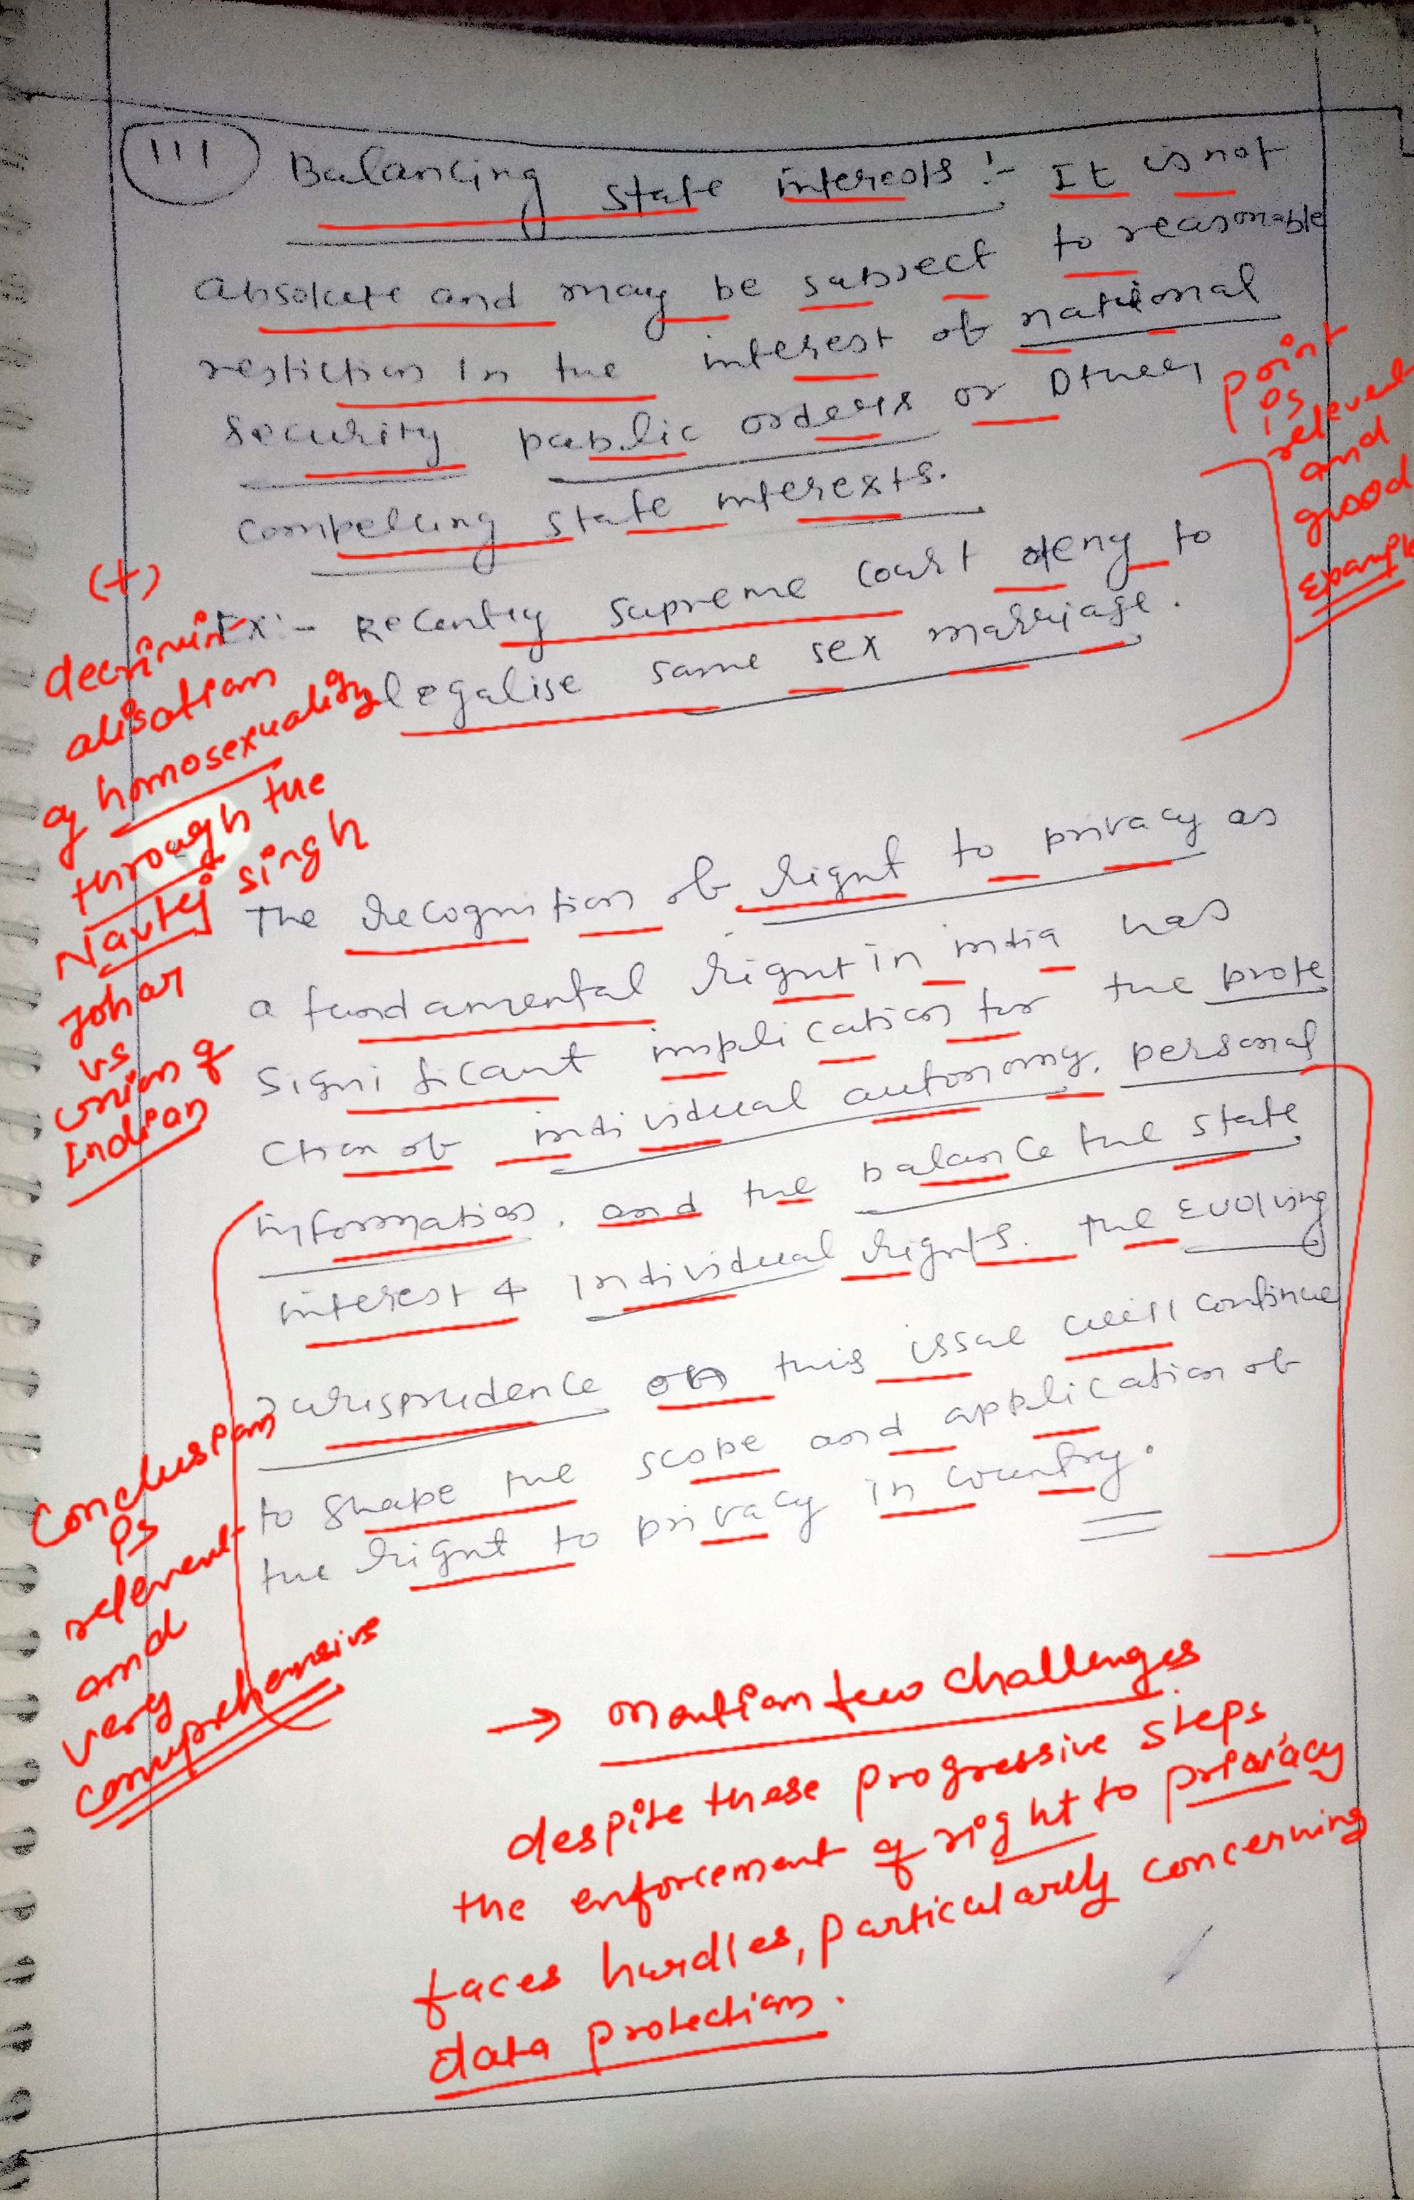 111 Balancing state interests :- It is not
absolute and may be subject to reasonable
restiction in the interest of national
security public orders or Other
compelling state interests.
Ex :- Recently supreme court deny to
legalise same sex marriage.
point
is
relevent
and
good
example
(+)
decrimin
alisation
of homosexuality
through the
Navtej singh
Johar
vs
union of
Indian
The recognition of right to privacy as
a fundamental right in india has
significant implication for the prote
ction of individual autonomy, personal
information, and the balance the state
interest & individual rights. the evolving
jurisprudence on this issue will continue
to shape the scope and application of
the right to privacy in country.
Conclusion
is
relevent
and
very
comprehensive
→ mention few challenges
despite these progressive steps
the enforcement of right to privacy
faces hurdles, particularly concerning
data protection.